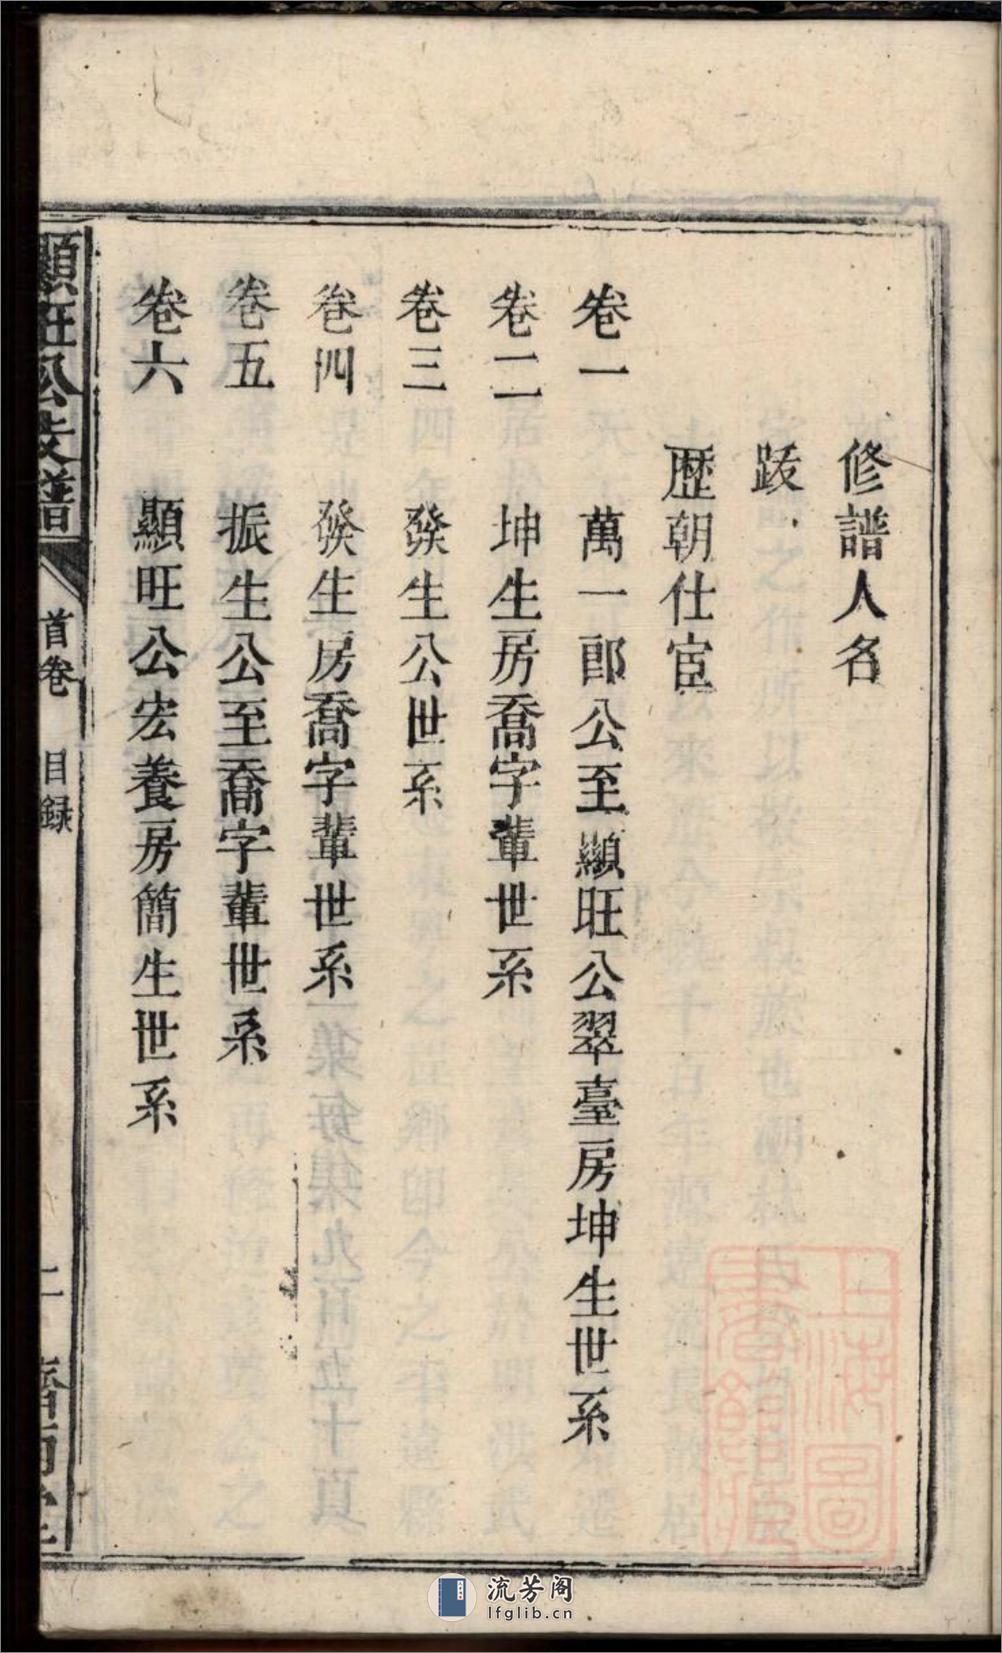 修譜人名
跋
歷朝仕宦
卷一 萬一郎公至顯旺公翠臺房坤生世系
卷二 坤生房喬字輩世系
卷三 發生公世系
卷四 發生房喬字輩世系
卷五 振生公至喬字輩世系
卷六 顯旺公宏養房簡生世系
顯旺公支譜
首卷 目録
二
上海圖
書館藏
流芳阁
lfglib.cn